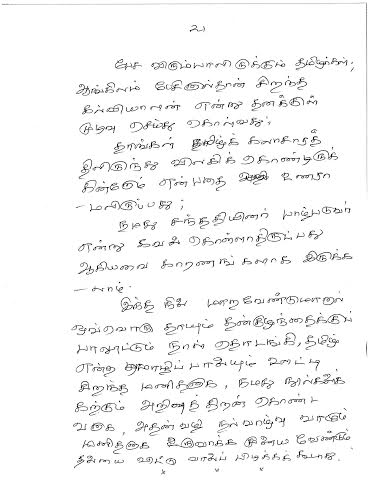 2
பேச விரும்பாமலிருக்கும் தமிழர்கள்;
ஆங்கிலம் பேசினால்தான் சிறந்த
கல்வியாளன் என்று தனக்குள்
முடிவு செய்து கொள்வது;
தாங்கள் தமிழ்க் கலாசாரத்
திலிருந்து விலகிக் கொண்டிருக்
கின்றோம் என்பதை உணரா
-மலிருப்பது;
நமது சந்ததியினர் பாழ்படுவர்
என்று கவலை கொள்ளாதிருப்பது
ஆகியவை காரணங்களாக இருக்க
-லாம்.
இந்த நிலை மாறவேண்டுமானால்
ஒவ்வொரு தாயும் தன் குழந்தைக்குப்
பாலூட்டும் நாள் தொடங்கி, தமிழ்
என்ற பாலையும் ஊட்டி
சிறந்த மனிதனாக, நமது நூல்களைக்
கற்கும் அறிவுத் திறன் கொண்ட
வராக, அதன்வழி நல்வாழ்வு வாழும்
மனிதனாக உருவாக்க முனைய வேண்டும்
தலையை விட்டு வாலைப் பிடிக்கக் கூடாது.